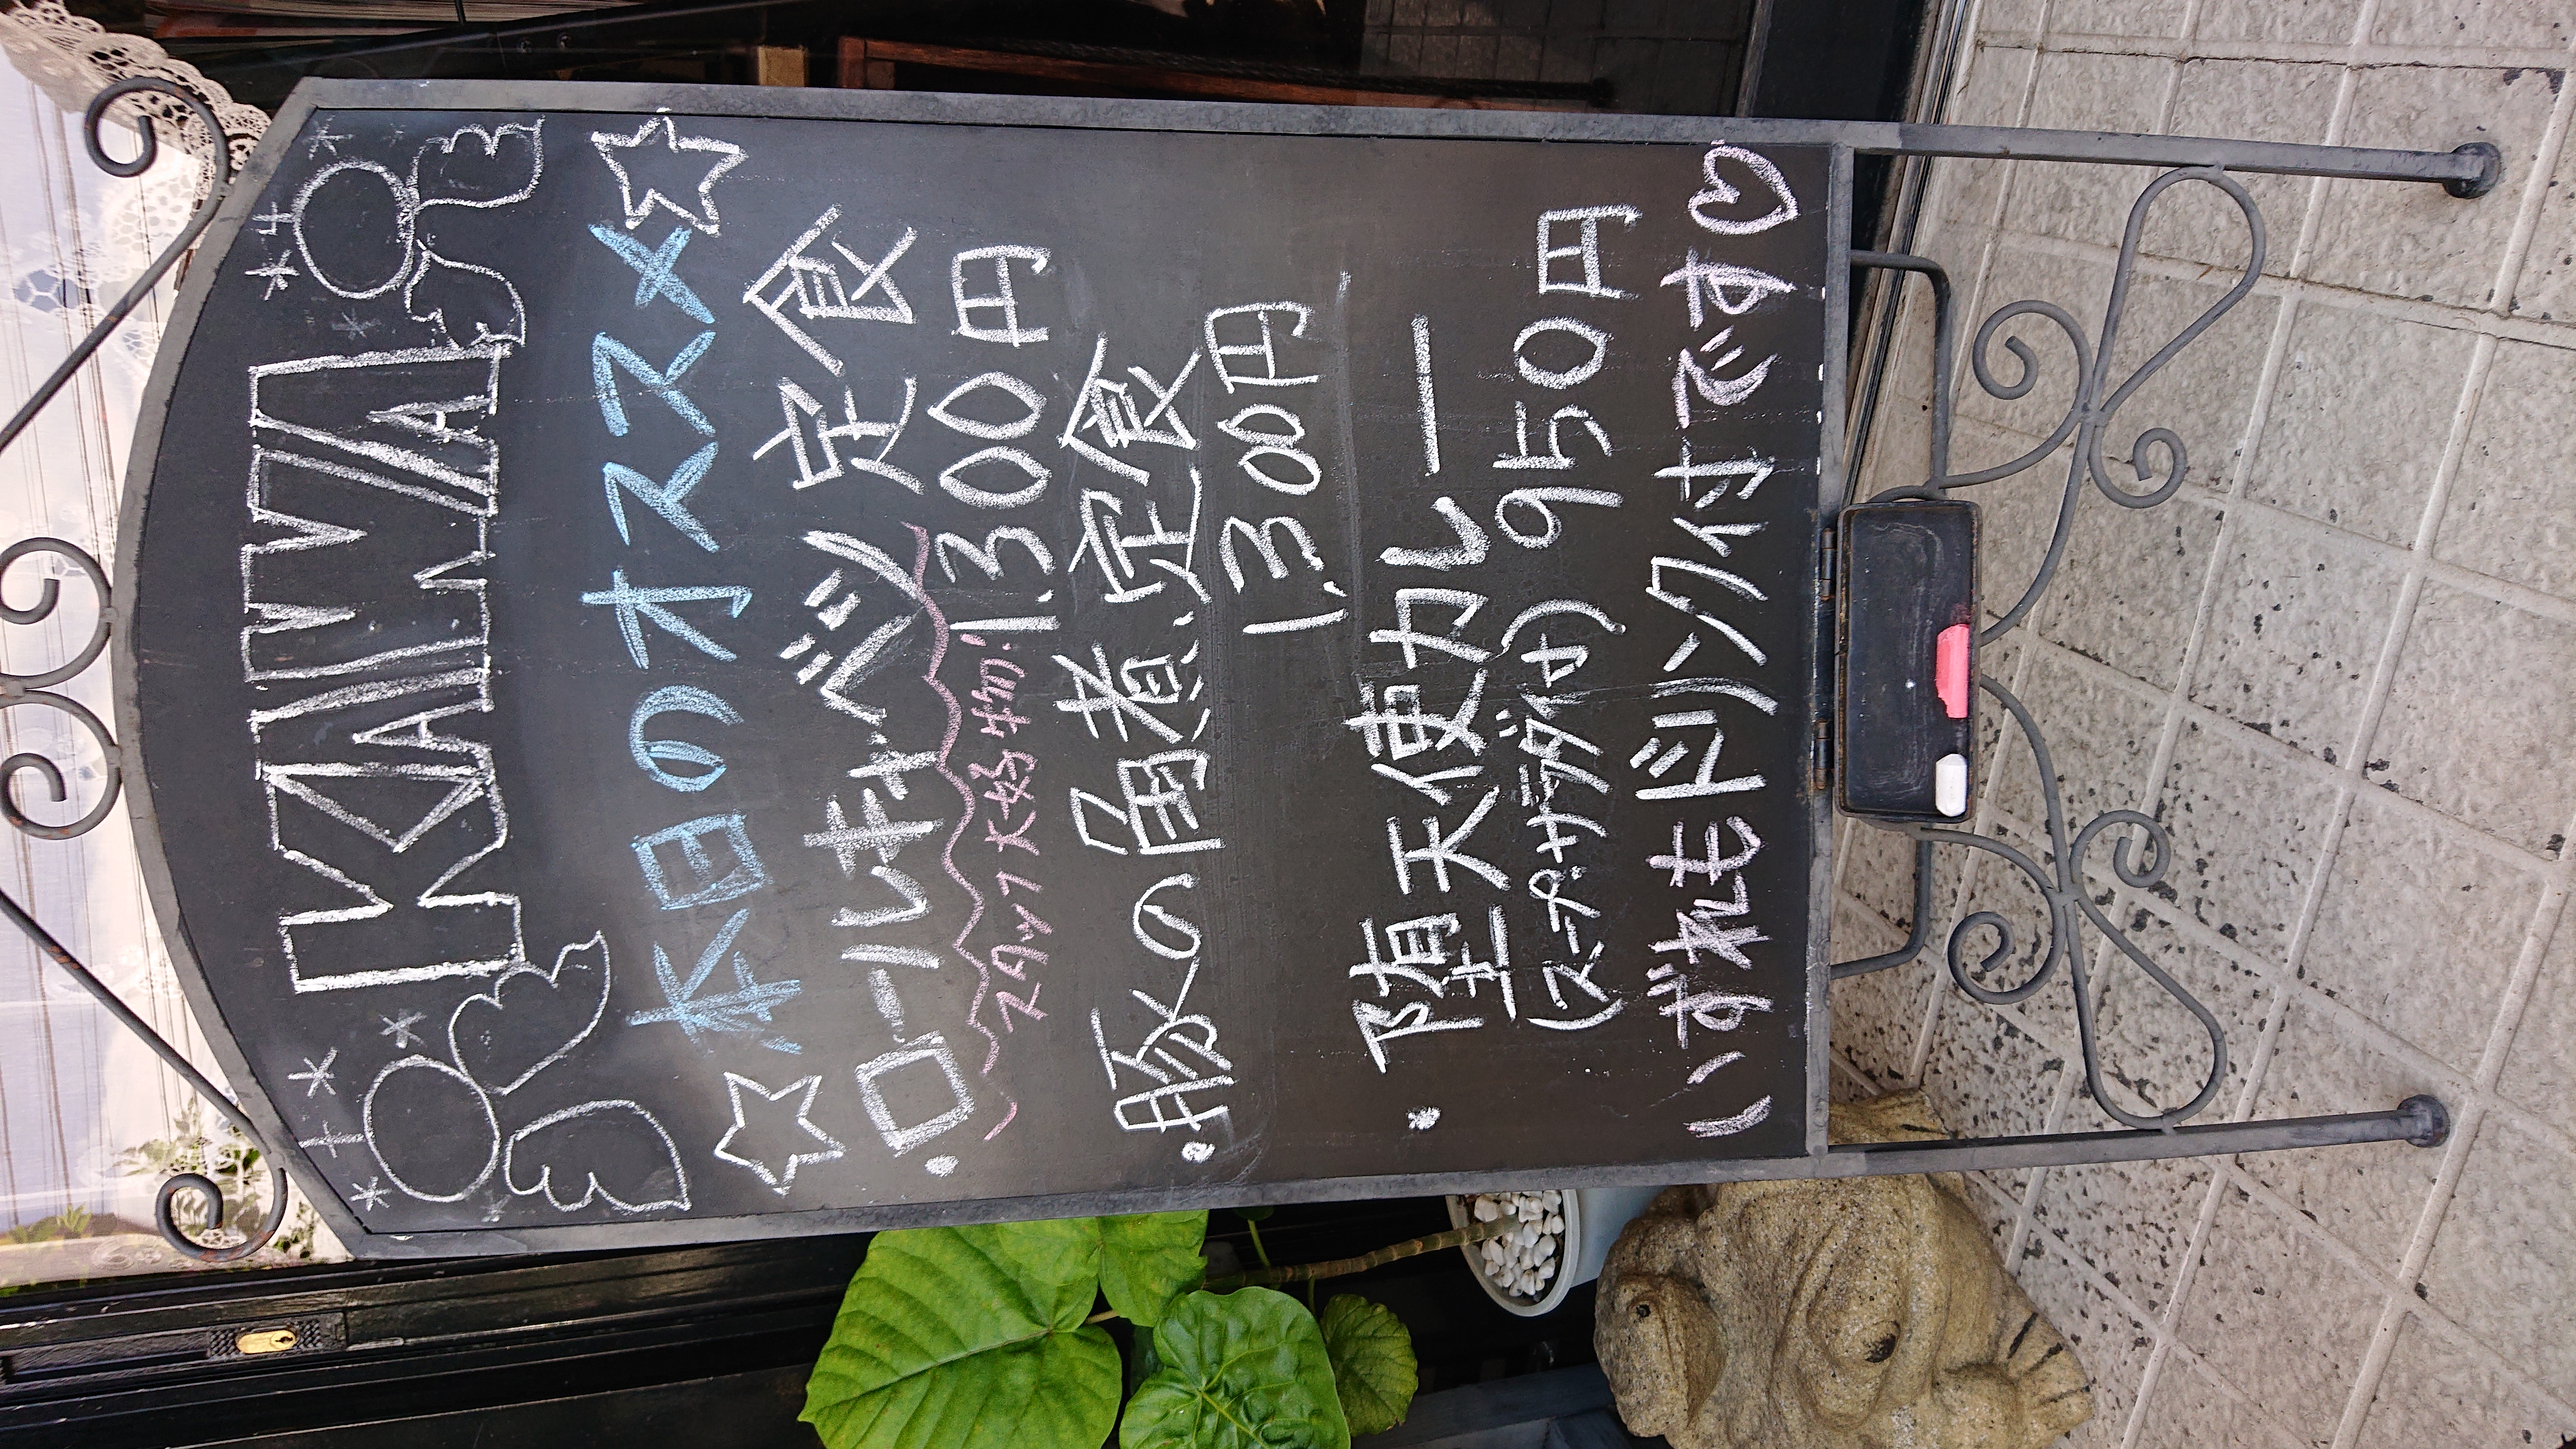 KAIVA
KAILAnA
☆本日のオススメ☆
・ロールキャベツ定食
スタッフ大好物!! 1.300円
・豚の角煮定食
1.300円
・堕天使カレー
(スープ・サラダ付) 950円
いずれもドリンク付です♡